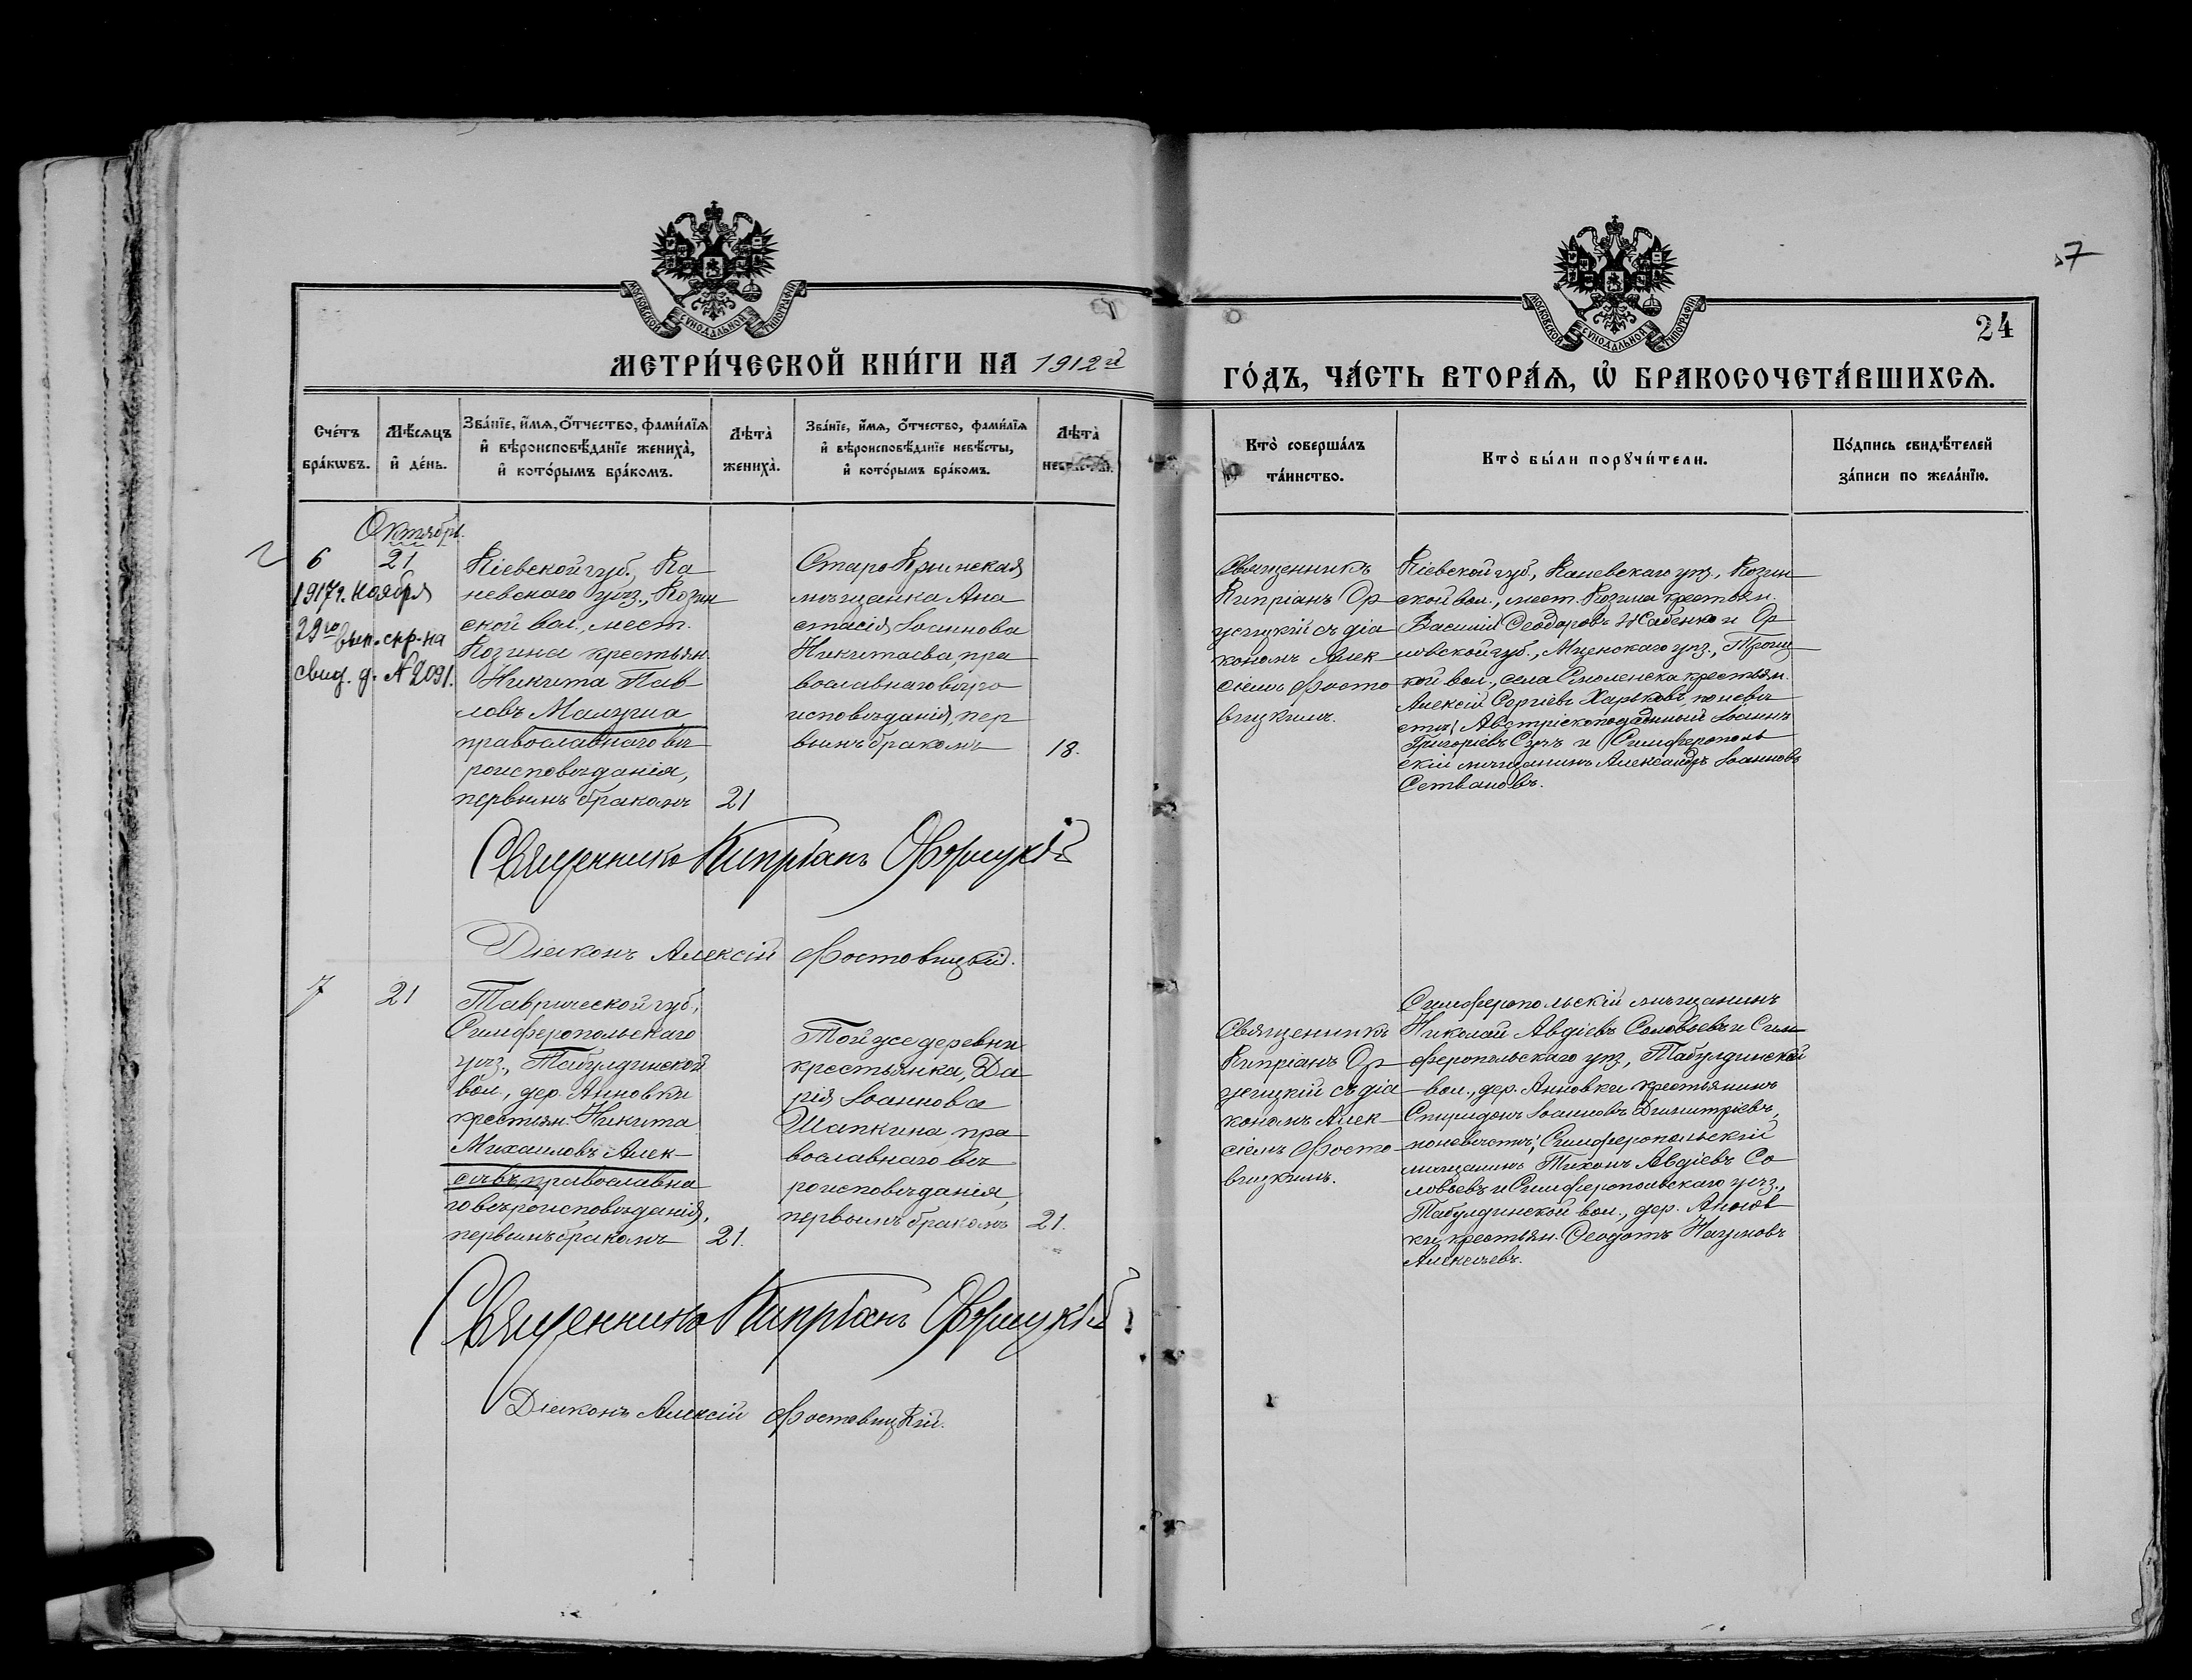 7
24
МОСКОВСКОЙ СѴНОДАЛЬНОЙ ТИПОГРАФІИ
МОСКОВСКОЙ СѴНОДАЛЬНОЙ ТИПОГРАФІИ
МЕТРИ́ЧЕСКОЙ КНИ́ГИ НА 1912й
ГО́ДЪ, ЧА́СТЬ ВТОРА́Ѧ, Ѡ҆ БРАКОСОЧЕТА́ВШИХСѦ.
Сче́тъ
бра́кѡвъ.
Мѣ́сѧцъ
и҆ де́нь.
Зва́нїе, и҆́мѧ, ѻ҆́тчество, фами́лїѧ
и҆ вѣроисповѣ́данїе жениха̀,
и҆ кото́рымъ бра́комъ.
Лѣта̀
жениха̀.
Зва́нїе, и҆́мѧ, ѻ҆́тчество, фами́лїѧ
и҆ вѣроисповѣ́данїе невѣ́сты,
и҆ кото́рымъ бра́комъ.
Лѣта̀
невѣ́сты.
Кто̀ соверша́лъ
та́инство.
Кто̀ бы́ли порꙋчи́тели.
По́дпись свидѣ́телей
за́писи по жела́нїю.
Октябрь.
6
21
1917 г. ноября
29го вып. спр. на
свид. д. № 2091.
Кіевской губ., Ка
невскаго уѣз., Козин
ской вол., мест.
Козина крестьян.
Никита Пав
ловъ
православнаго вѣ
роисповѣданія,
первымъ бракомъ
21
Старо Крымская
мѣщанка Ана
стасія Іоаннова
Никитаева, пра
вославнаго вѣро
исповѣданія, пер
вымъ бракомъ
18.
Священникъ
Кипріанъ Ор
жецкій съ діа
кономъ Алек
сіемъ Фосто
вицкимъ.
Кіевской губ., Каневскаго уѣз., Козин
ской вол., мест. Козина крестьян.
Василій Ѳеодоровъ Жабенко и Ор
ловской губ., Мценскаго уѣз., Троиц
кой вол., села Смоленска крестьян.
Алексій Сергіевъ Харьковъ, по невѣ
стѣ: Австрійскоподданный Іоаннъ
Григоріевъ и Симферополь
скій мѣщанинъ Александръ Іоанновъ
Сетвановъ.
Священникъ Кипріанъ Оржецкій
Діаконъ Алексій Фостовицкій.
7
21
Таврической губ.,
Симферопольскаго
уѣз., Табулдинской
вол., дер. Анновки
крестьян. Никита
Михаиловъ Алек
сѣевъ, православна
го вѣроисповѣданія,
первымъ бракомъ
21.
Той же деревни
крестьянка, Да
рія Іоаннова
Шапкина, пра
вославнаго вѣ
роисповѣданія,
первымъ бракомъ
21.
Священникъ
Кипріанъ Ор
жецкій съ діа
кономъ Алек
сіемъ Фосто
вицкимъ.
Симферопольскій мѣщанинъ
Николай Авдіевъ Соловьевъ и Сим
феропольскаго уѣз., Табулдинской
вол., дер. Анновки крестьянинъ
Спиридонъ Іоанновъ Димитріевъ,
по невѣстѣ: Симферопольскій
мѣщанинъ Тихонъ Авдіевъ Со
ловьевъ и Симферопольскаго уѣз.,
Табулдинской вол., дер. Аннов
ки, крестьян. Ѳеодотъ Наумовъ
Алексѣевъ.
Священникъ Кипріанъ Оржецкій
Діаконъ Алексій Фостовицкій.